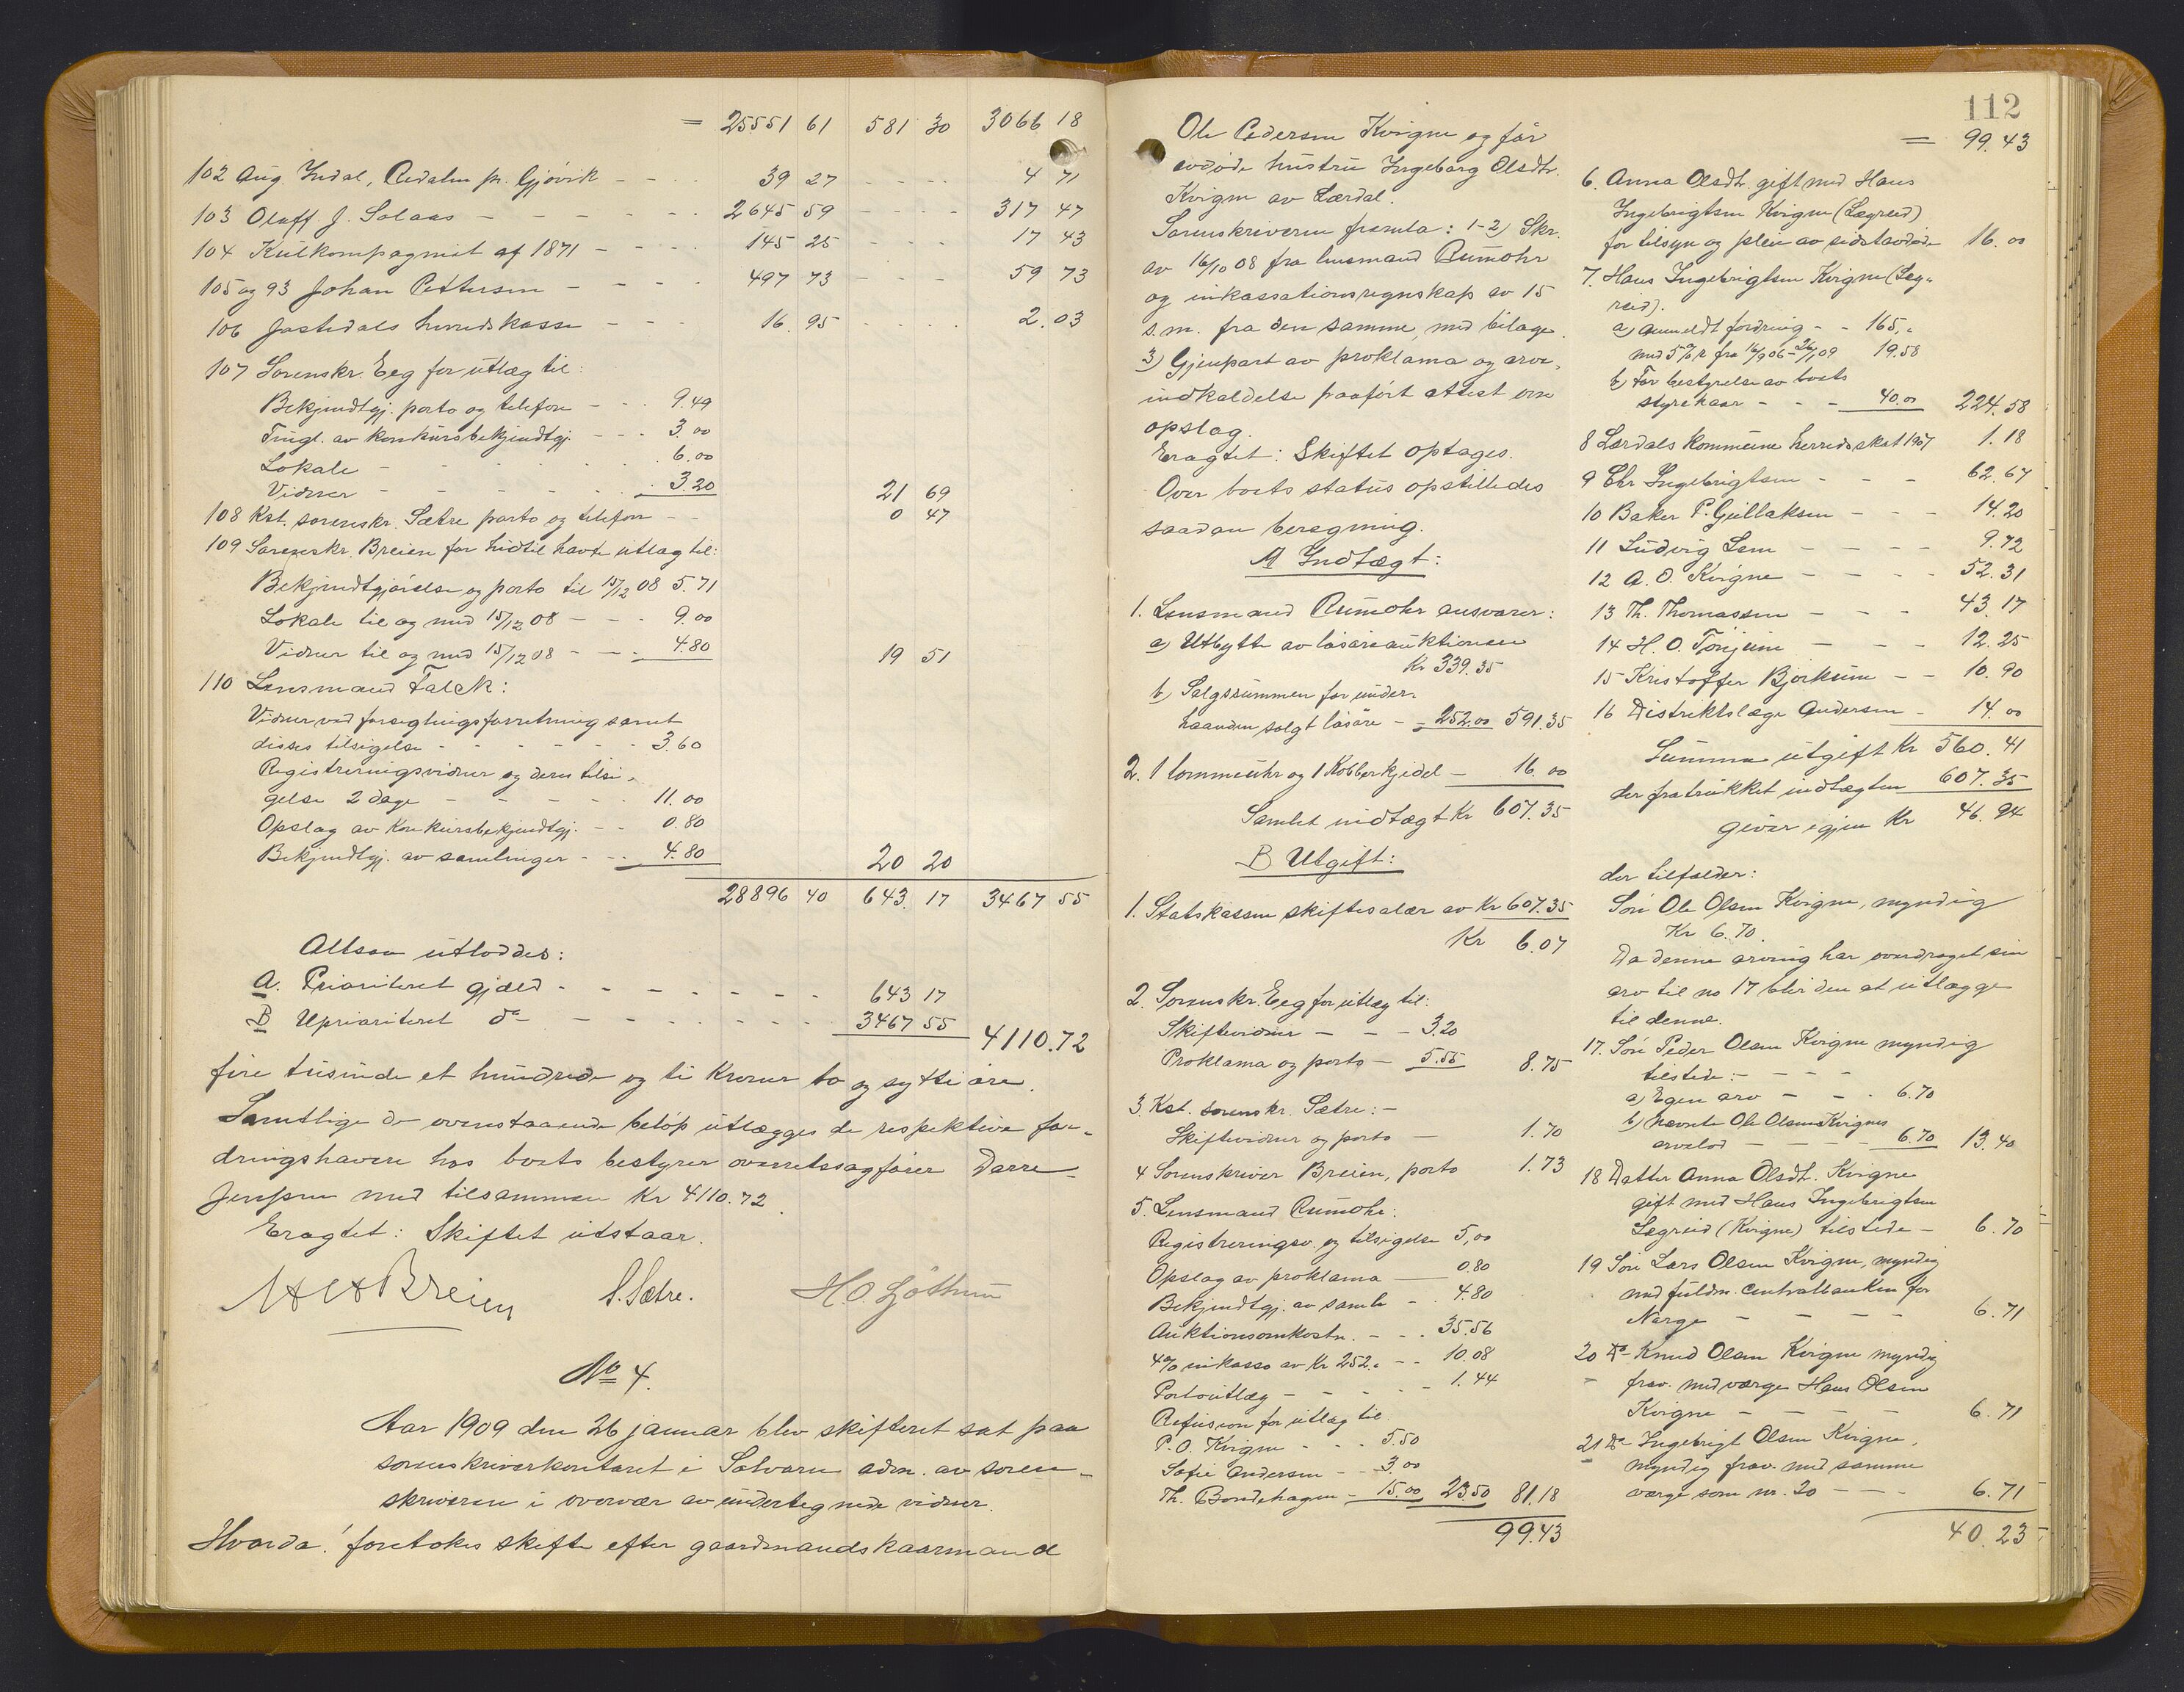 = 25551 61 581 30 3066 18
102 Aug. Indal, Redalen pr. Gjøvik - - 39 27 - - - - 4 71
103 Oluff. J. Solaas - - - - - - 2645 59 - - - - 317 47
104 Kulkompagniet af 1871 - - - - 145 25 - - - 17 43
105 og 93 Johan Pettersen - - - - 497 73 - - - 59 73
106 Jostedals herredskasse - - - 16.95 - - - - 2.03
107 Sorenskr. Eeg for utlæg til:
Bekjendtgj. porto og telefon - - - 9.49
Tingl. av konkursbekjendtgj. - - - 3.00
Lokale - - - - - - 6.00
Vidner - - - - - - 3.20 21 69
108 Kst. sorenskr. Sætre porto og telefon - - 0 47
109 Sorenskr. Breien for hidtil havt utlæg til:
Bekjendtgjørelse og porto til 15/12 08 5.71
Lokale til og med 15/12 08 - - - 9.00
Vidner til og med 15/12 08 - - - 4.80 19 51
110 Lensmand Falck:
Vidner ved forseglingsforretning samt
disses tilsigelse - - - - - - 3.60
Registreringsvidner og deres tilsi-
gelse 2 dage - - - - - 11.00
Opslag av konkursbekjendtgj. - - 0.80
Bekjendtgj. av samlinger - - - 4.80 20 20
28896 40 643.17 3467 55
Altsaa utloddes:
A. Prioriteret gjæld - - - - - - - 643 17
B Uprioriteret do - - - - - - - 3467 55 4110.72
fire tusinde et hundrede og ti kroner to og sytti øre.
Samtlige de ovenstaaende beløp utlægges de respektive for-
dringshavere hos boets bestyrer overretssagfører Darre
Jenssen med tilsammen Kr 4110.72.
Eragtet: Skiftet utstaar.
Breien S. Sætre. H.O.
No 4.
Aar 1909 den 26 januar blev skifteret sat paa
sorenskriverkontoret i Solvorn adm. av soren-
skriveren i overvær av undertegnede vidner.
Hvorda! foretokes skifte efter gaardmands kaarmand
112
Ole Pedersen Kvigne og før
avdøde hustru Ingeborg Olsdtr.
Kvigne av Lærdal.
Sorenskriveren fremla: 1-2) Skr.
av 16/10 08 fra lensmand Rumohr
og inkassationsregnskap av 15
s.m. fra den samme, med bilage.
3) Gjenpart av proklama og arve-
indkaldelse paaført attest om
opslag.
Eragtet: Skiftet optages.
Over boets status opstilledes
saadan beregning.
A Indtægt:
1. Lensmand Rumohr ansvarer:
a) Utbytte av løsøreauktionen
Kr 339.35
b) Salgssummen for under-
haanden solgt løsøre - - 252.00 591.35
2. 1 lommeuhr og 1 Kobberkjedel - 16.00
Samlet indtægt Kr 607.35
B Utgift:
1. Statskassen skiftesalær av Kr 607.35
Kr 6.07
2. Sorenskr. Eeg for utlæg til:
Skiftevidner - - - 3.20
Proklama og porto - 5.55 8.75
3. Kst. sorenskr. Sætre: -
Skiftevidner og porto - 1.70
4 Sorenskriver Breien, porto 1.73
5. Lensmand Rumohr:
Registreringsv. og tilsigelse 5,00
Opslag av proklama - 0.80
Bekjendtgj. av samle - . 4.80
Auktionsomkostn. - - . 35.56
4% inkasso av Kr 252.- - - 10.08
Portoutlæg - - - - - 1.44
Refusion for utlæg til
P. O. Kvigne - - - 5.50
Sofie Andersen - - 3.00
Th. Bondehagen - 15.00 23.50 81.18
99.43
= 99.43
6. Anna Olsdtr. gift med Hans
Ingebrigtsen Kvigne (Lægreid)
for tilsyn og pleie av sidstavdøde 16.00
7. Hans Ingebrigtsen Kvigne (Læg-
reid).
a) anmeldt fordring - - 165,-
med 5% r fra 16/9 06 - 26/1 09 19.58
b) For bestyrelse av boets
styrekaar - - - 40.00 224.58
8 Lærdals kommune herredsskat 1907 1.18
9 Chr Ingebrigtsen - - - 62.67
10 Baker P. Gullaksen - - - 14.20
11 Ludvig Lem - - - - 9.72
12 A. O. Kvigne - - - - 52.31
13 Th. Thomassen - - - 43.17
14 H. O. Tønjum - - - 12.25
15 Kristoffer Bjørkum - - 10.90
16 Distriktslæge Andersen - 14.00
Summa utgift Kr 560.41
der fratrukket indtægten 607.35
giver igjen Kr 46.94
der tilfalder:
Søn Ole Olsen Kvigne, myndig
Kr 6.70.
Da denne arving har overdraget sin
arv til no 17 blir den at utlægge
til denne.
17. Søn Peder Olsen Kvigne myndig
tilstede: - - - -
a) Egen arv - - - 6.70
b) nævnte Ole Olsen Kvignes
arvelod - - - - 6.70 13.40
18 Datter Anna Olsdt. Kvigne
gift med Hans Ingebrigtsen
Lægreid (Kvigne) tilstede - 6.70
19 Søn Lars Olsen Kvigne, myndig
med fuldm. Centralbanken for
Norge - - - - - 6.71
20 do Knud Olsen Kvigne myndig
frav. med værge Hans Olsen
Kvigne - - - - - 6.71
21 do Ingebrigt Olsen Kvigne,
myndig frav. med samme
værge som nr. 20 - - - 6.71
40.23